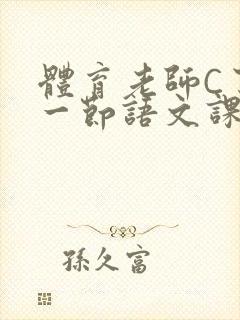 體育老師C
一節語文課
孫久富